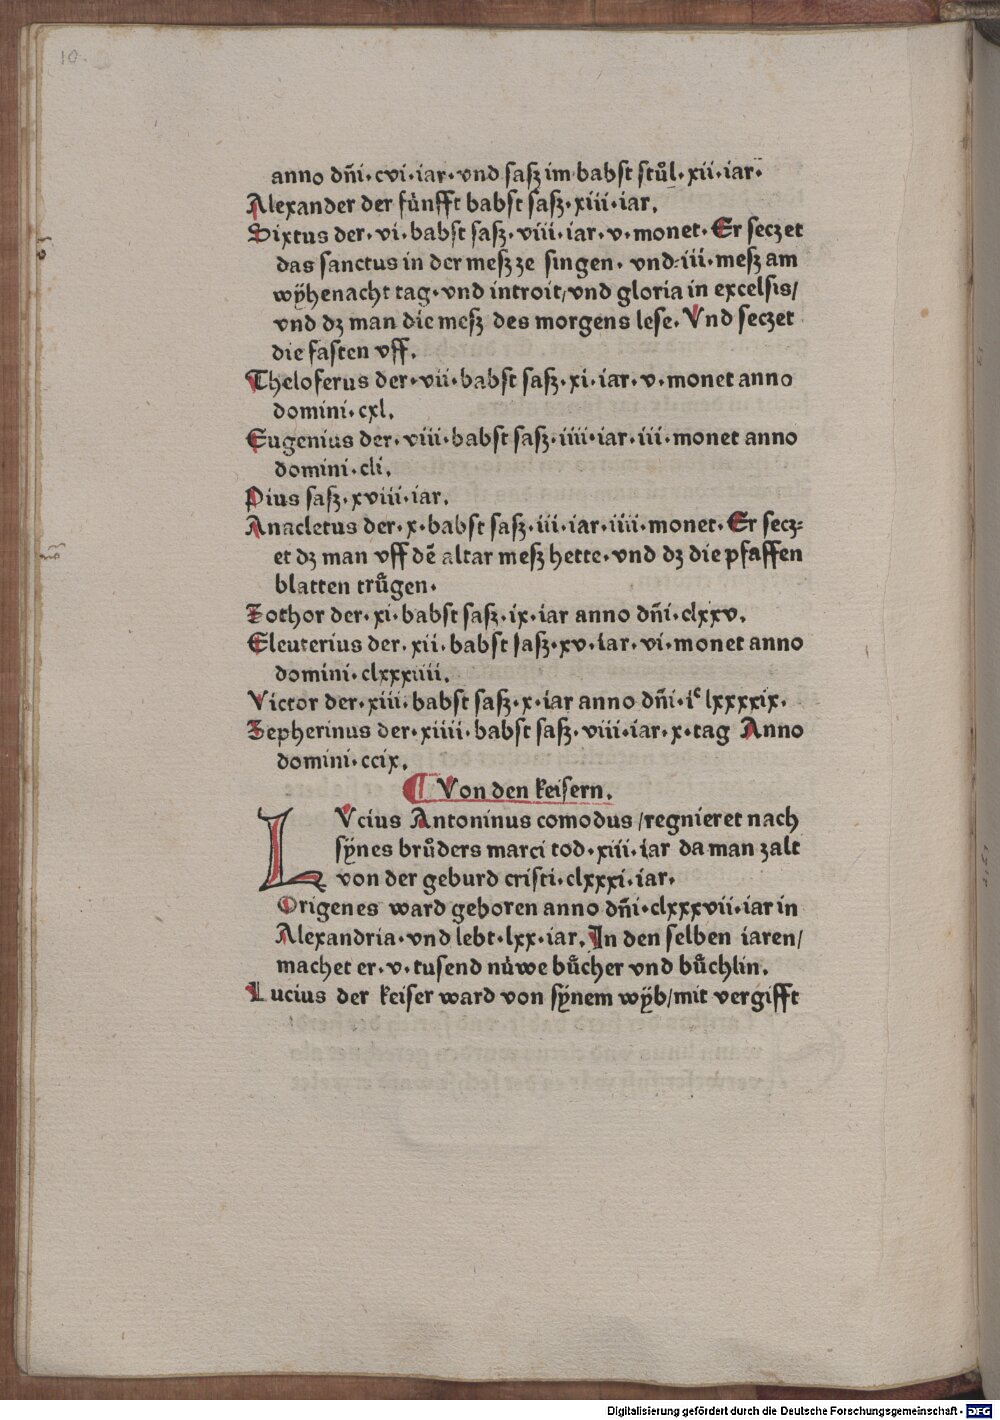 10.
anno dñi·cvi·iar·vnd saſʒ im babſt ſtůl·xii·iar·
Alexander der fúnfft babſt ſaſʒ·xiii·iar.
Sixtus der·vi·babſt ſaſʒ·viii·iar·v·monet·Er ſeczet
das ſanctus in der meſʒ ze ſingen·vnd·iii·meſʒ am
wÿhenacht tag·vnd introit/vnd gloria in excelſis/
vnd dʒ man die meſʒ des morgens leſe. Vnd ſeczet
die faſten vff.
Theloferus der·vii·babſt ſaſʒ·xi·iar·v·monet anno
domini·cxl.
Eugenius der·viii·babſt ſaſʒ·iiii·iar·iii·monet anno
domini·cli.
Pius ſaſʒ·xviii·iar.
Anacletus der·x·babſt ſaſʒ·iii·iar·iiii·monet·Er ſecz⸗
et dʒ man vff dē altar meſʒ hette·vnd dʒ die pfaffen
blatten trůgen·
Zothor der·xi·babſt ſaſʒ·ix·iar anno dñi·clxxv.
Eleuterius der·xii·babſt ſaſʒ·xv·iar·vi·monet anno
domini·clxxxiiii.
Victor der·xiii·babſt ſaſʒ·x·iar anno dñi·iᶜ lxxxxix·
Zepherinus der·xiiii·babſt ſaſʒ·viii·iar·x·tag Anno
domini·ccix.
¶ Von den keiſern.
LVcius Antoninus comodus/regnieret nach
ſÿnes brůders marci tod·xiii·iar da man zalt
von der geburd criſti·clxxxi·iar·
Origenes ward geboren anno dñi·clxxxvii·iar in
Alexandria·vnd lebt·lxx·iar. In den ſelben iaren/
machet er·v·tuſend núwe bůcher vnd bůchlin.
Lucius der keiſer ward von ſÿnem wÿb/mit vergifft
Digitalisierung gefördert durch die Deutsche Forschungsgemeinschaft - DFG